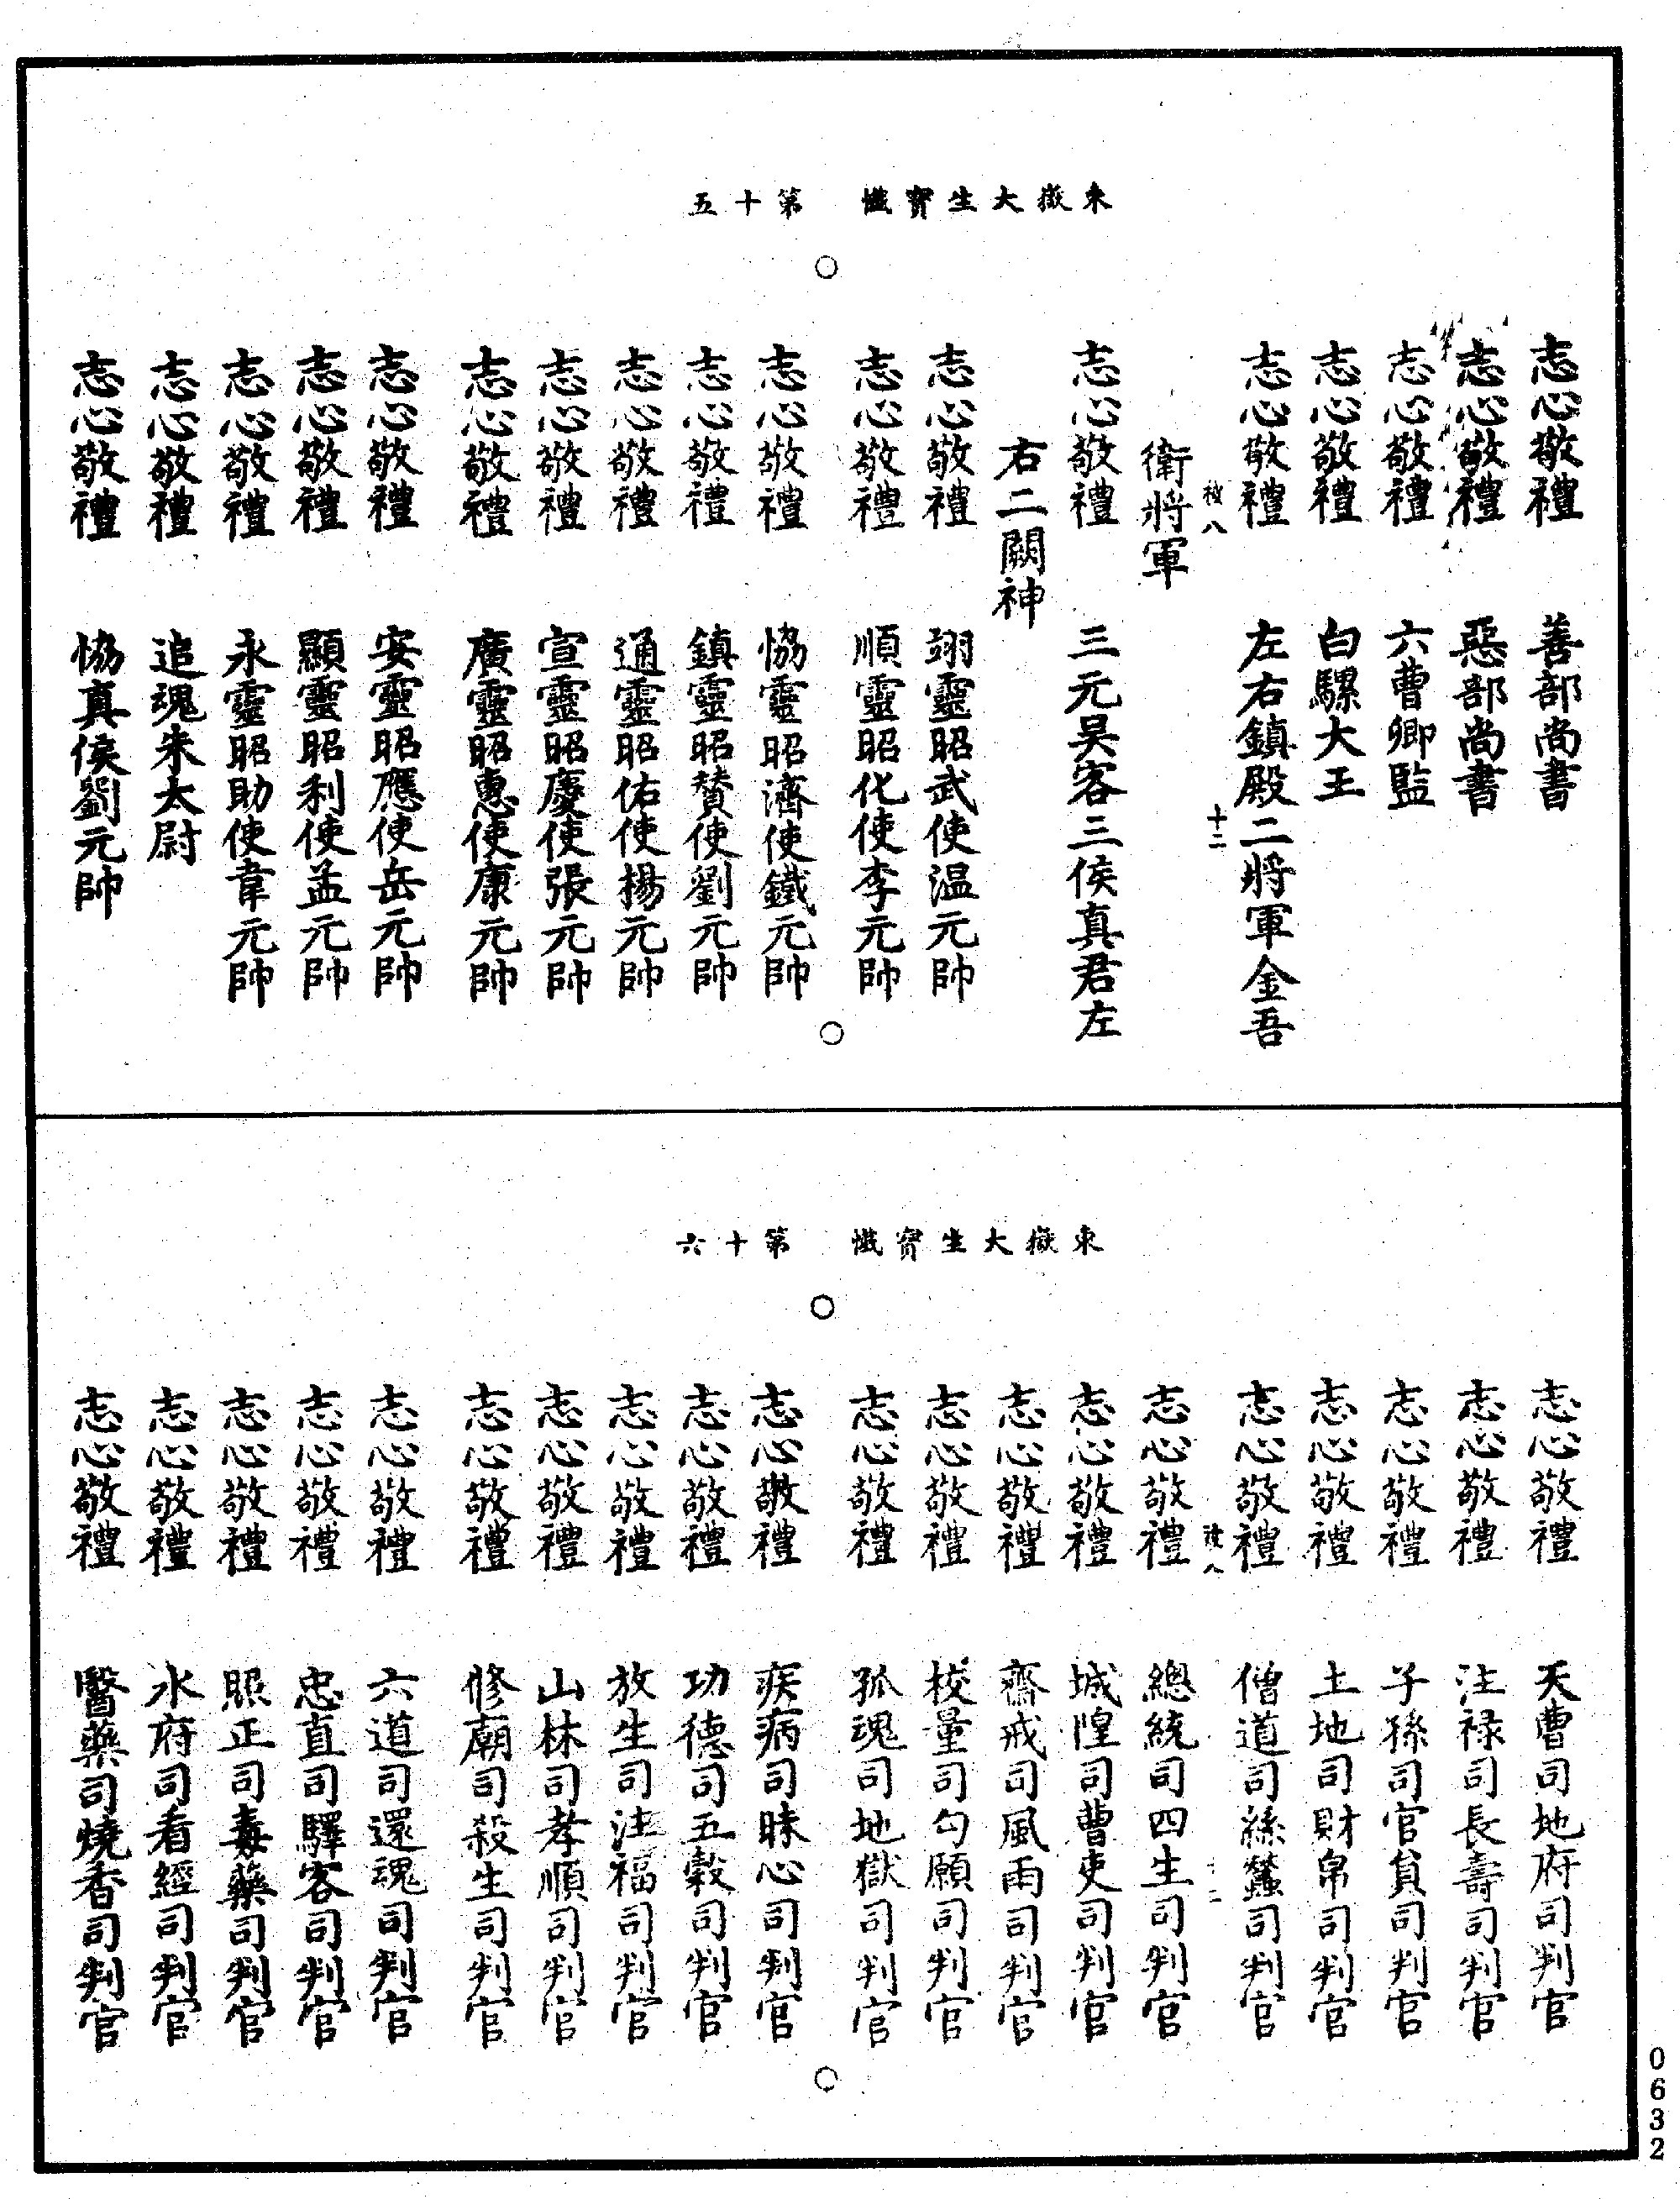 東嶽大生寶懺　第十五
志心敬禮　善部尚書
志心敬禮　惡部尚書
志心敬禮　六曹卿監
志心敬禮　白騾大王
志心敬禮　左右鎮殿二將軍金吾
十二
衛將軍
志心敬禮　三元吴客三侯真君左
右二闕神
志心敬禮　翊靈昭武使温元帥
志心敬禮　順靈昭化使李元帥
志心敬禮　協靈昭濟使鐵元帥
志心敬禮　鎮靈昭贊使劉元帥
志心敬禮　通靈昭佑使楊元帥
志心敬禮　宣靈昭慶使張元帥
志心敬禮　廣靈昭惠使康元帥
志心敬禮　安靈昭應使岳元帥
志心敬禮　顯靈昭利使孟元帥
志心敬禮　永靈昭助使韋元帥
志心敬禮　追魂朱太尉
志心敬禮　協真侯劉元帥
東嶽大生寶懺　第十六
志心敬禮　天曹司地府司判官
志心敬禮　注禄司長壽司判官
志心敬禮　子孫司官員司判官
志心敬禮　土地司財帛司判官
志心敬禮　僧道司絲蠶司判官
志心敬禮　總統司四生司判官
志心敬禮　城隍司曹吏司判官
志心敬禮　齋戒司風雨司判官
志心敬禮　校量司勾願司判官
志心敬禮　孤魂司地獄司判官
志心敬禮　疾病司昧心司判官
志心敬禮　功德司五穀司判官
志心敬禮　放生司注福司判官
志心敬禮　山林司孝順司判官
志心敬禮　修廟司殺生司判官
志心敬禮　六道司還魂司判官
志心敬禮　忠直司驛客司判官
志心敬禮　照正司毒藥司判官
志心敬禮　水府司看經司判官
志心敬禮　醫藥司燒香司判官
0632